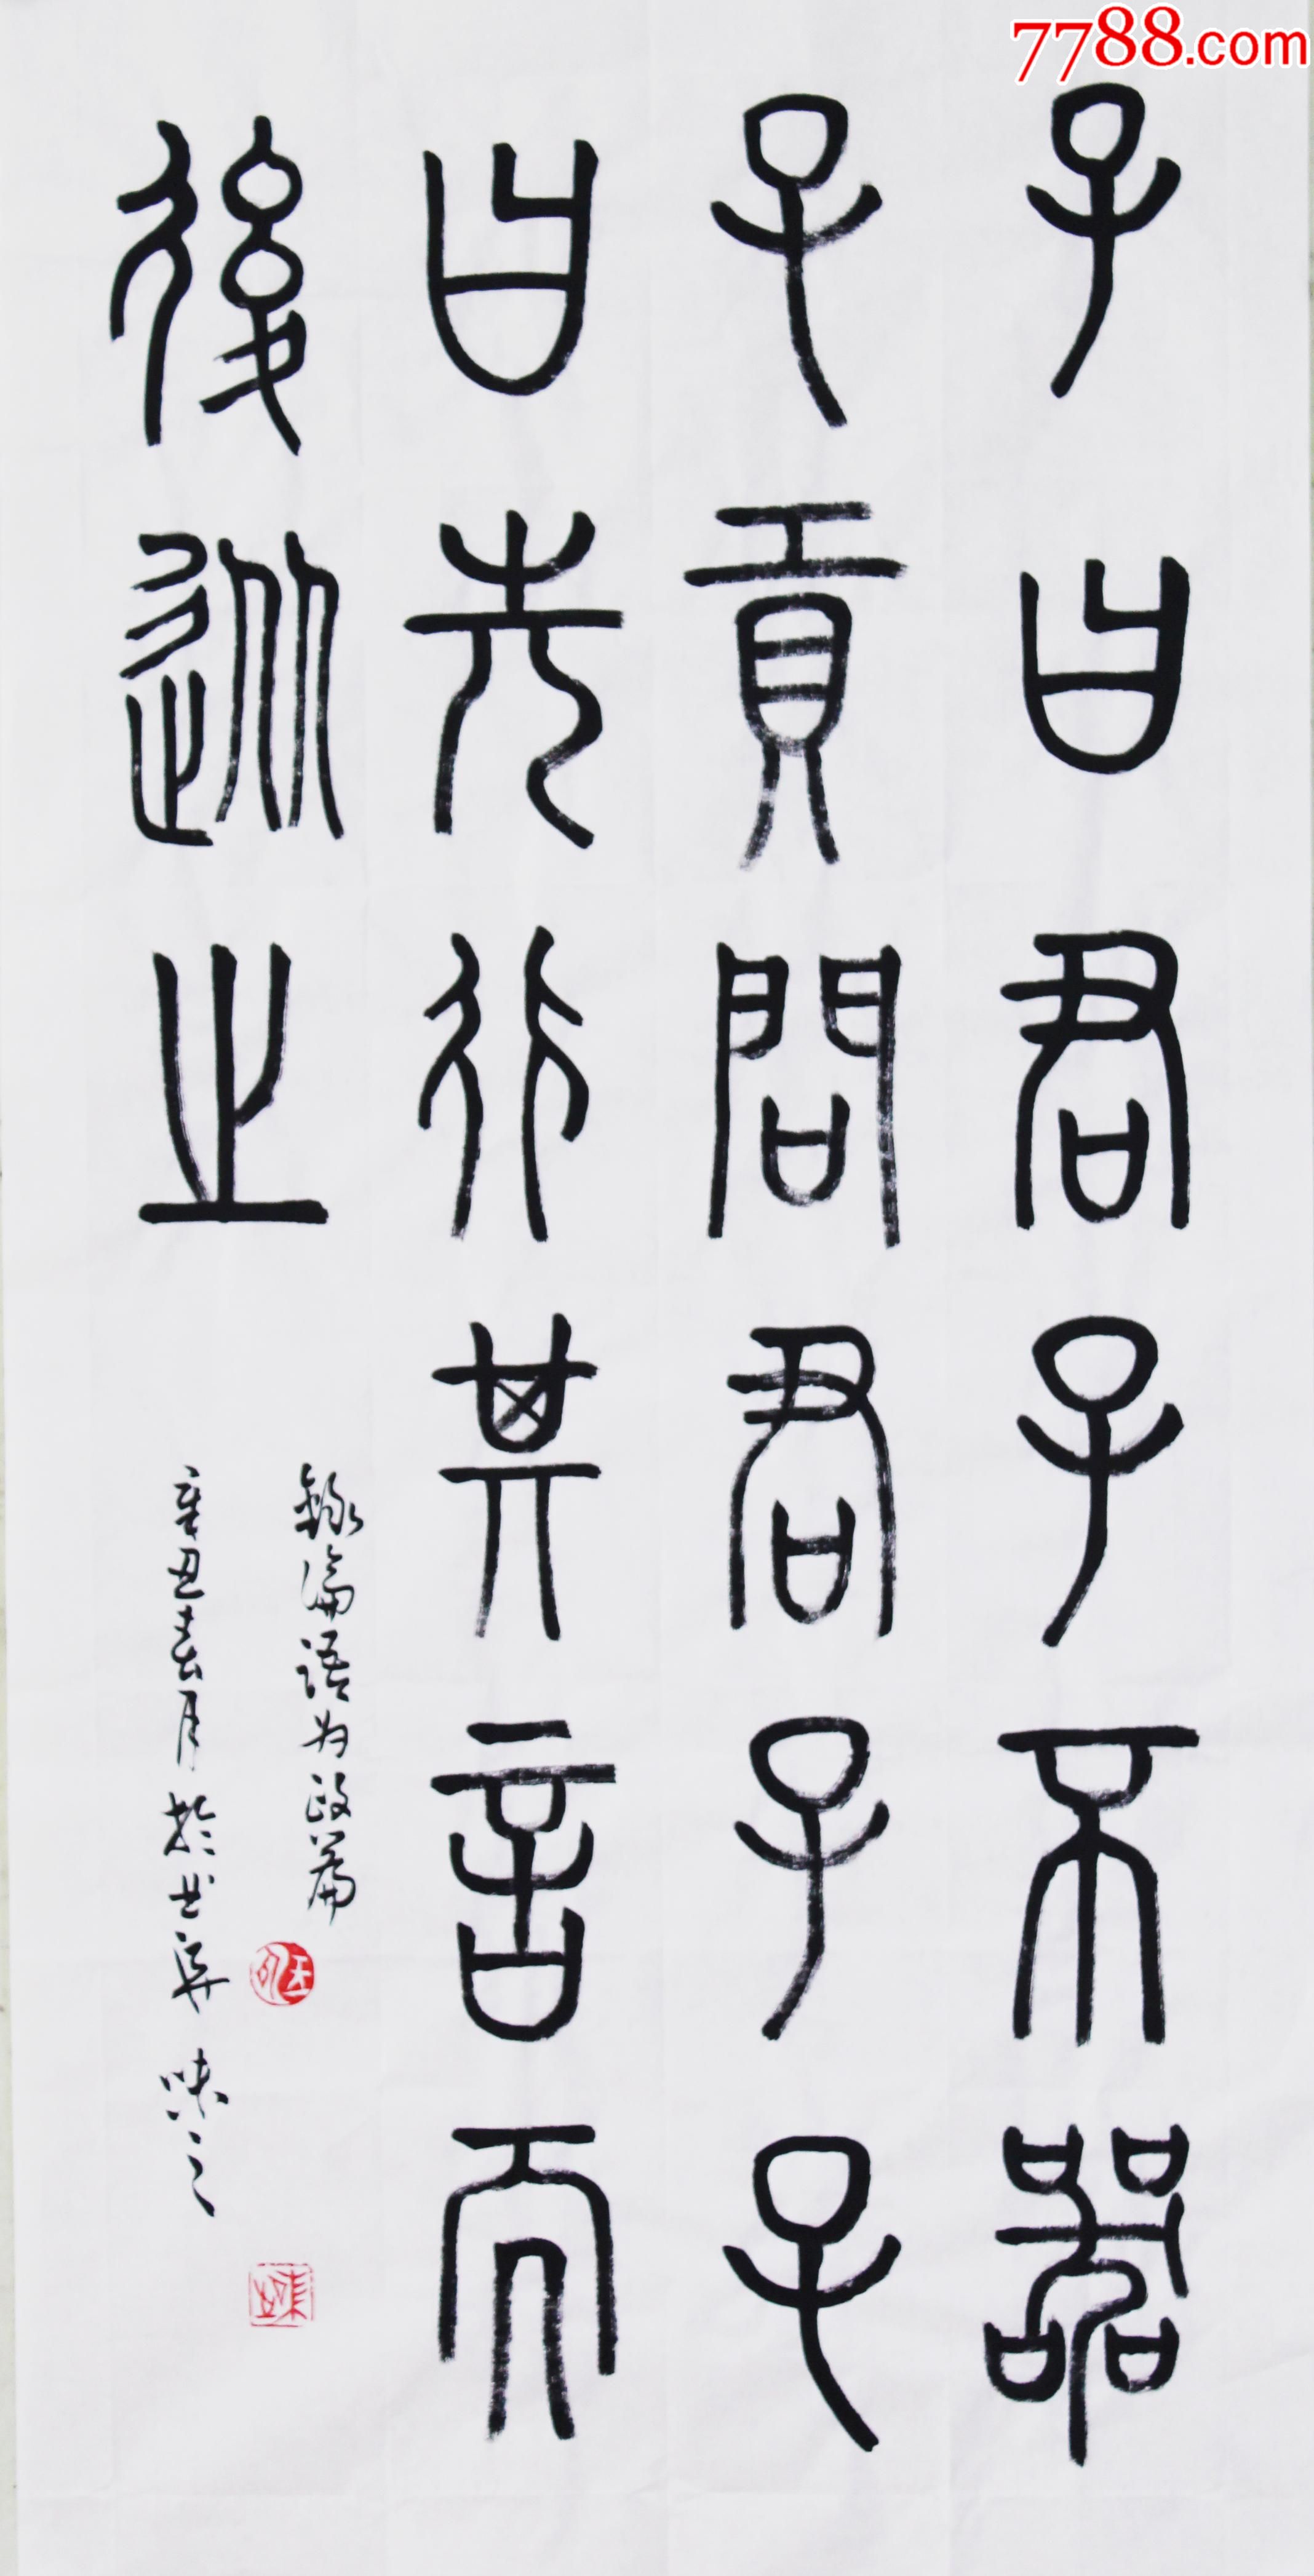 7788.com
子曰君子不器
子貢問君子子
曰先行其言而
後從之
錄論語为政篇
辛丑春月於 味之